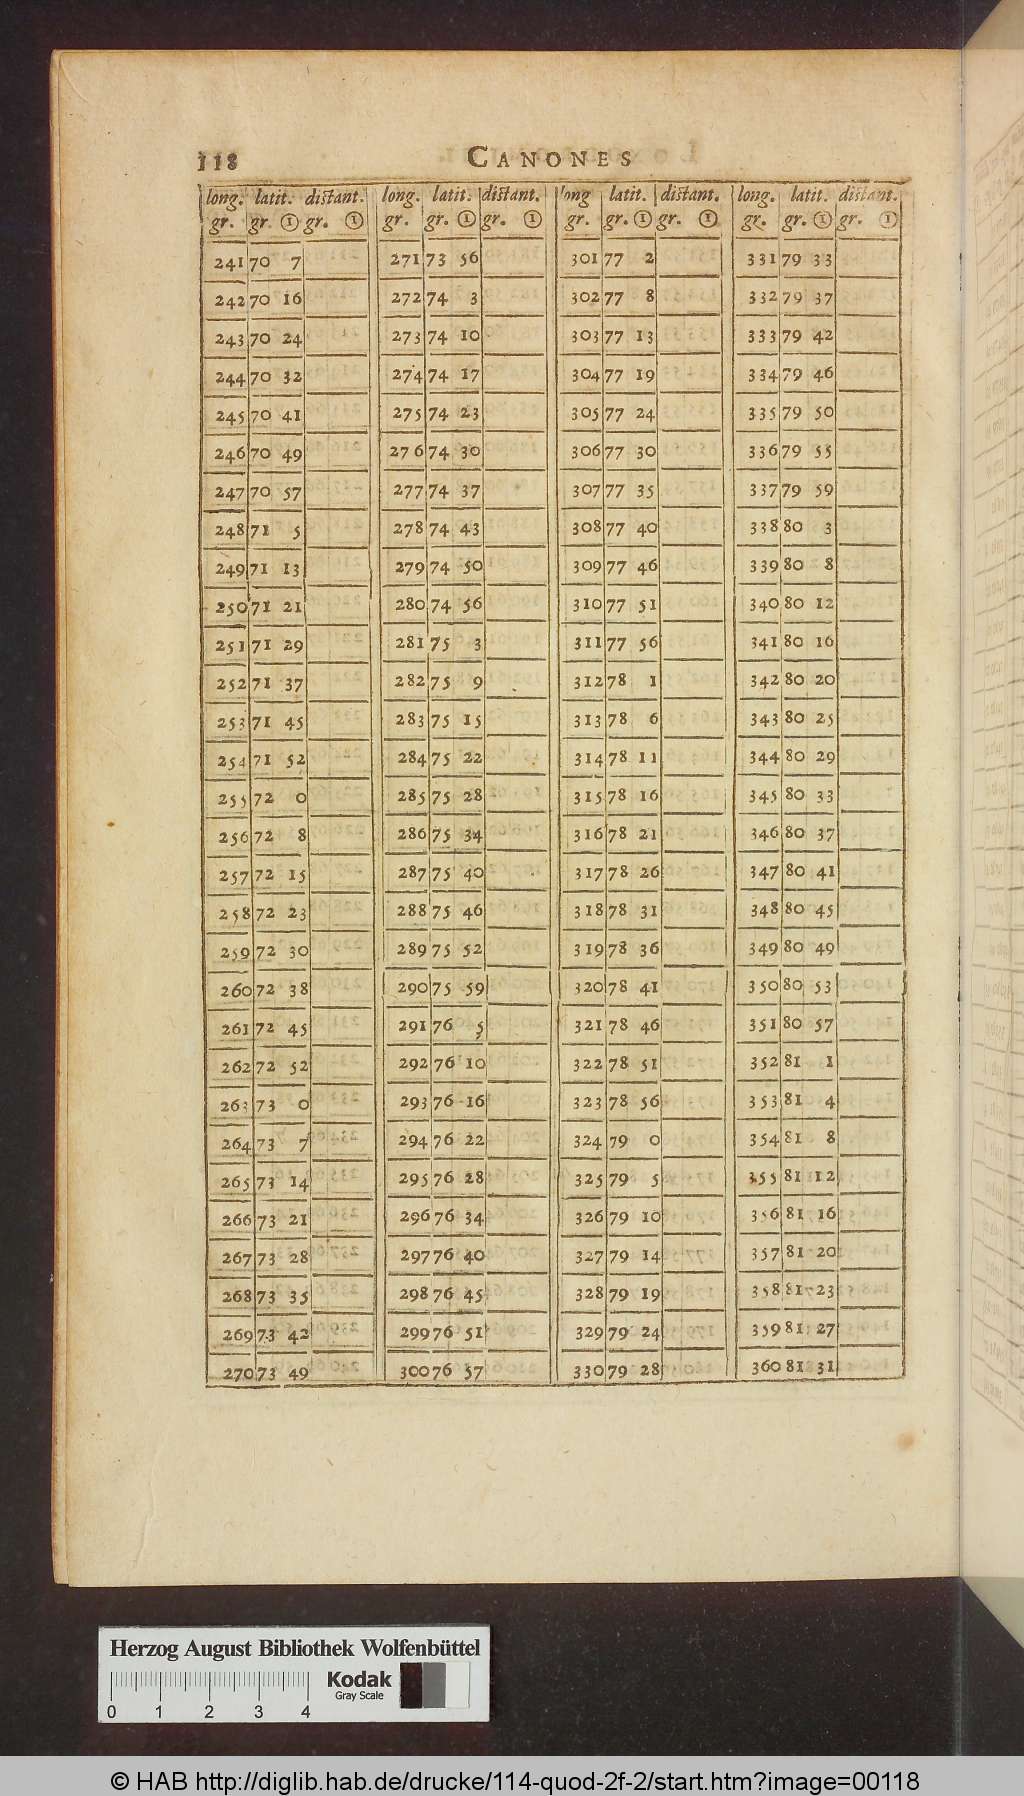 118 CANONES
long. latit. distant. long. latit. distant. long latit. distant. long. latit. distant.
gr. gr. ① gr. ① gr. gr. ① gr. ① gr. gr. ① gr. ① gr. gr. ① gr. ①
241 70 7 271 73 56 301 77 2 331 79 33
242 70 16 272 74 3 302 77 8 332 79 37
243 70 24 273 74 10 303 77 13 333 79 42
244 70 32 274 74 17 304 77 19 334 79 46
245 70 41 275 74 23 305 77 24 335 79 50
246 70 49 276 74 30 306 77 30 336 79 55
247 70 57 277 74 37 307 77 35 337 79 59
248 71 5 278 74 43 308 77 40 338 80 3
249 71 13 279 74 50 309 77 46 339 80 8
250 71 21 280 74 56 310 77 51 340 80 12
251 71 29 281 75 3 311 77 56 341 80 16
252 71 37 282 75 9 312 78 1 342 80 20
253 71 45 283 75 15 313 78 6 343 80 25
254 71 52 284 75 22 314 78 11 344 80 29
255 72 0 285 75 28 315 78 16 345 80 33
256 72 8 286 75 34 316 78 21 346 80 37
257 72 15 287 75 40 317 78 26 347 80 41
258 72 23 288 75 46 318 78 31 348 80 45
259 72 30 289 75 52 319 78 36 349 80 49
260 72 38 290 75 59 320 78 41 350 80 53
261 72 45 291 76 5 321 78 46 351 80 57
262 72 52 292 76 10 322 78 51 352 81 1
263 73 0 293 76 16 323 78 56 353 81 4
264 73 7 294 76 22 324 79 0 354 81 8
265 73 14 295 76 28 325 79 5 355 81 12
266 73 21 296 76 34 326 79 10 356 81 16
267 73 28 297 76 40 327 79 14 357 81 20
268 73 35 298 76 45 328 79 19 358 81 23
269 73 42 299 76 51 329 79 24 359 81 27
270 73 49 300 76 57 330 79 28 360 81 31
Herzog August Bibliothek Wolfenbüttel
Kodak
Gray Scale
0 1 2 3 4
© HAB http://diglib.hab.de/drucke/114-quod-2f-2/start.htm?image=00118